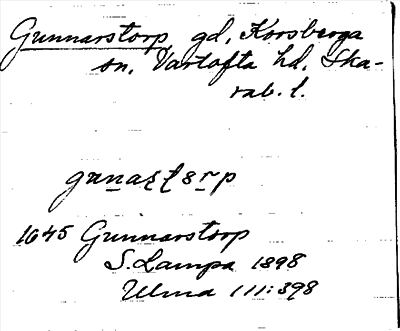 Gunnarstorp gd, Korsberga
sn, Vartofta hd, Ska-
rab. l.
1645 Gunnarstorp
S. Lampa 1898
Ulma 111:398